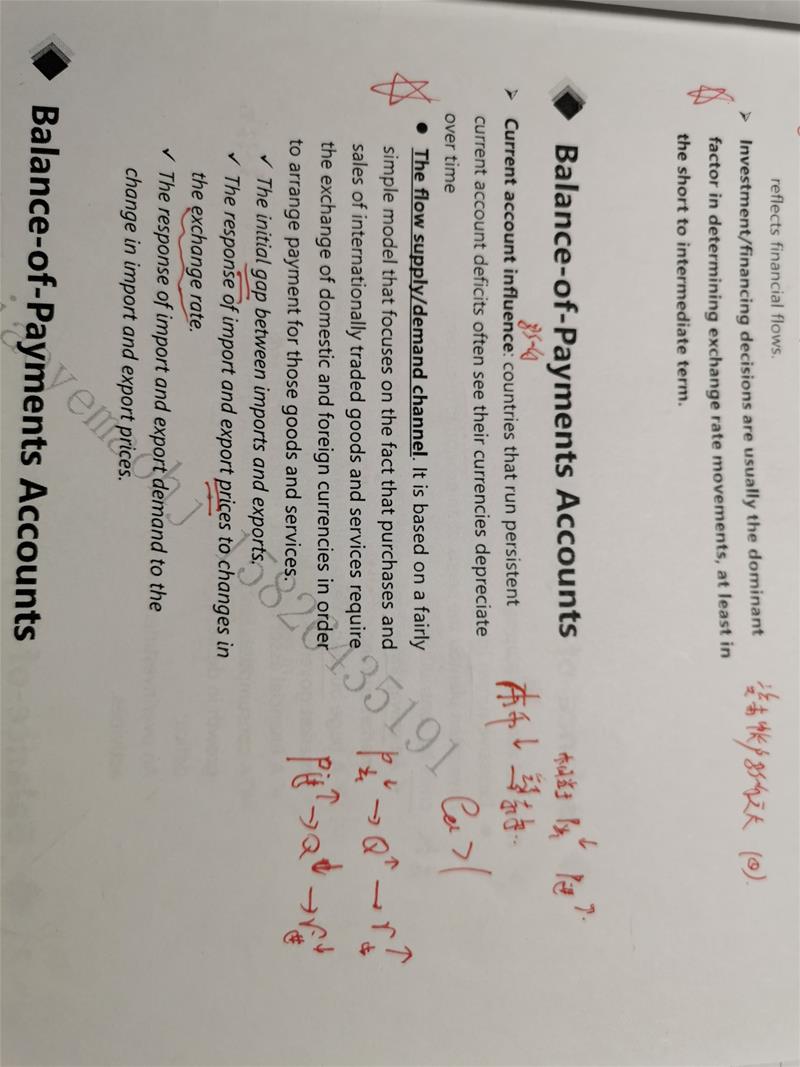 reflects financial flows.
➢ Investment/financing decisions are usually the dominant
factor in determining exchange rate movements, at least in
the short to intermediate term.
◆ Balance-of-Payments Accounts
➢ Current account influence: countries that run persistent
current account deficits often see their currencies depreciate
over time
• The flow supply/demand channel. It is based on a fairly
simple model that focuses on the fact that purchases and
sales of internationally traded goods and services require
the exchange of domestic and foreign currencies in order
to arrange payment for those goods and services.
✓ The initial gap between imports and exports.
✓ The response of import and export prices to changes in
the exchange rate.
✓ The response of import and export demand to the
change in import and export prices.
本币↓
>1
P出↓ → Q↑ → r出↑
P进↑ → Q↓ → r进↓
15826435191
◆ Balance-of-Payments Accounts